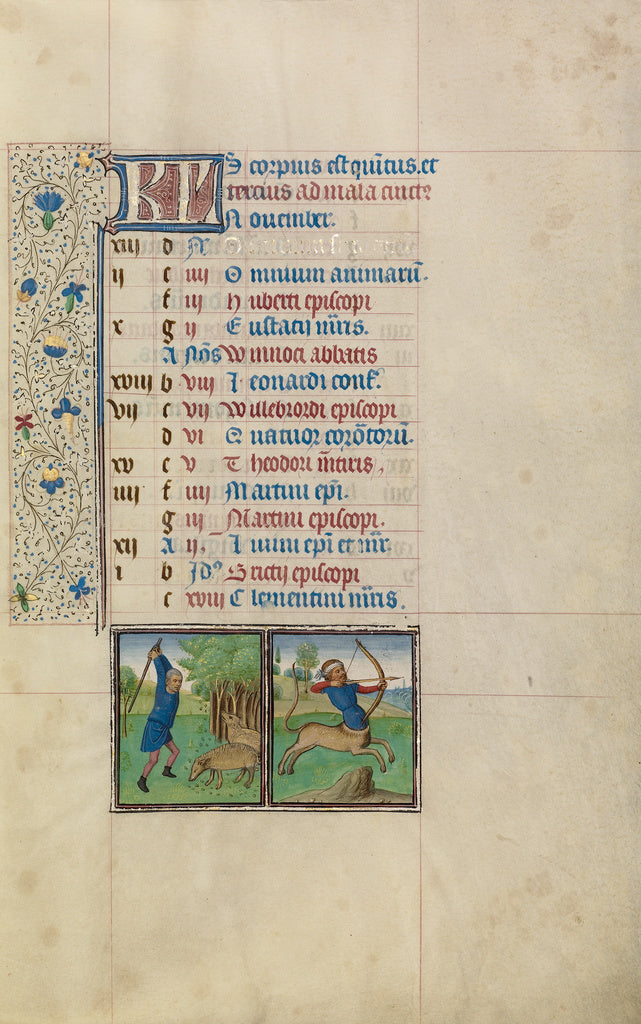 KL Scorpius est quītus. et
tercius ad mala cincte
Nouember.
xiii d N
ii e iiii Omnium animarū.
f iii Huberti episcopi
x g ii Eustacij m̄ris.
A Noñs Winnoci abbatis
xviii b viii Leonardi conf.
vii c vii Willebrordi episcopi
d vi Quatuor coronatorū.
xv e v Theodori m̄tiris.
iiii f iiii Martini ep̄i.
g iii Martini episcopi.
xii A ii. ep̄i et m̄r.
i b Jdꝰ Brictij episcopi
c xviii Clementini m̄ris.